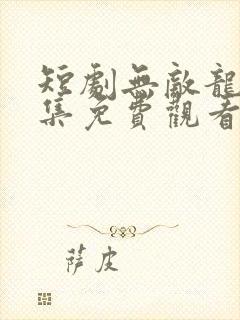 短劇無敵龍
集免費觀看
薩皮